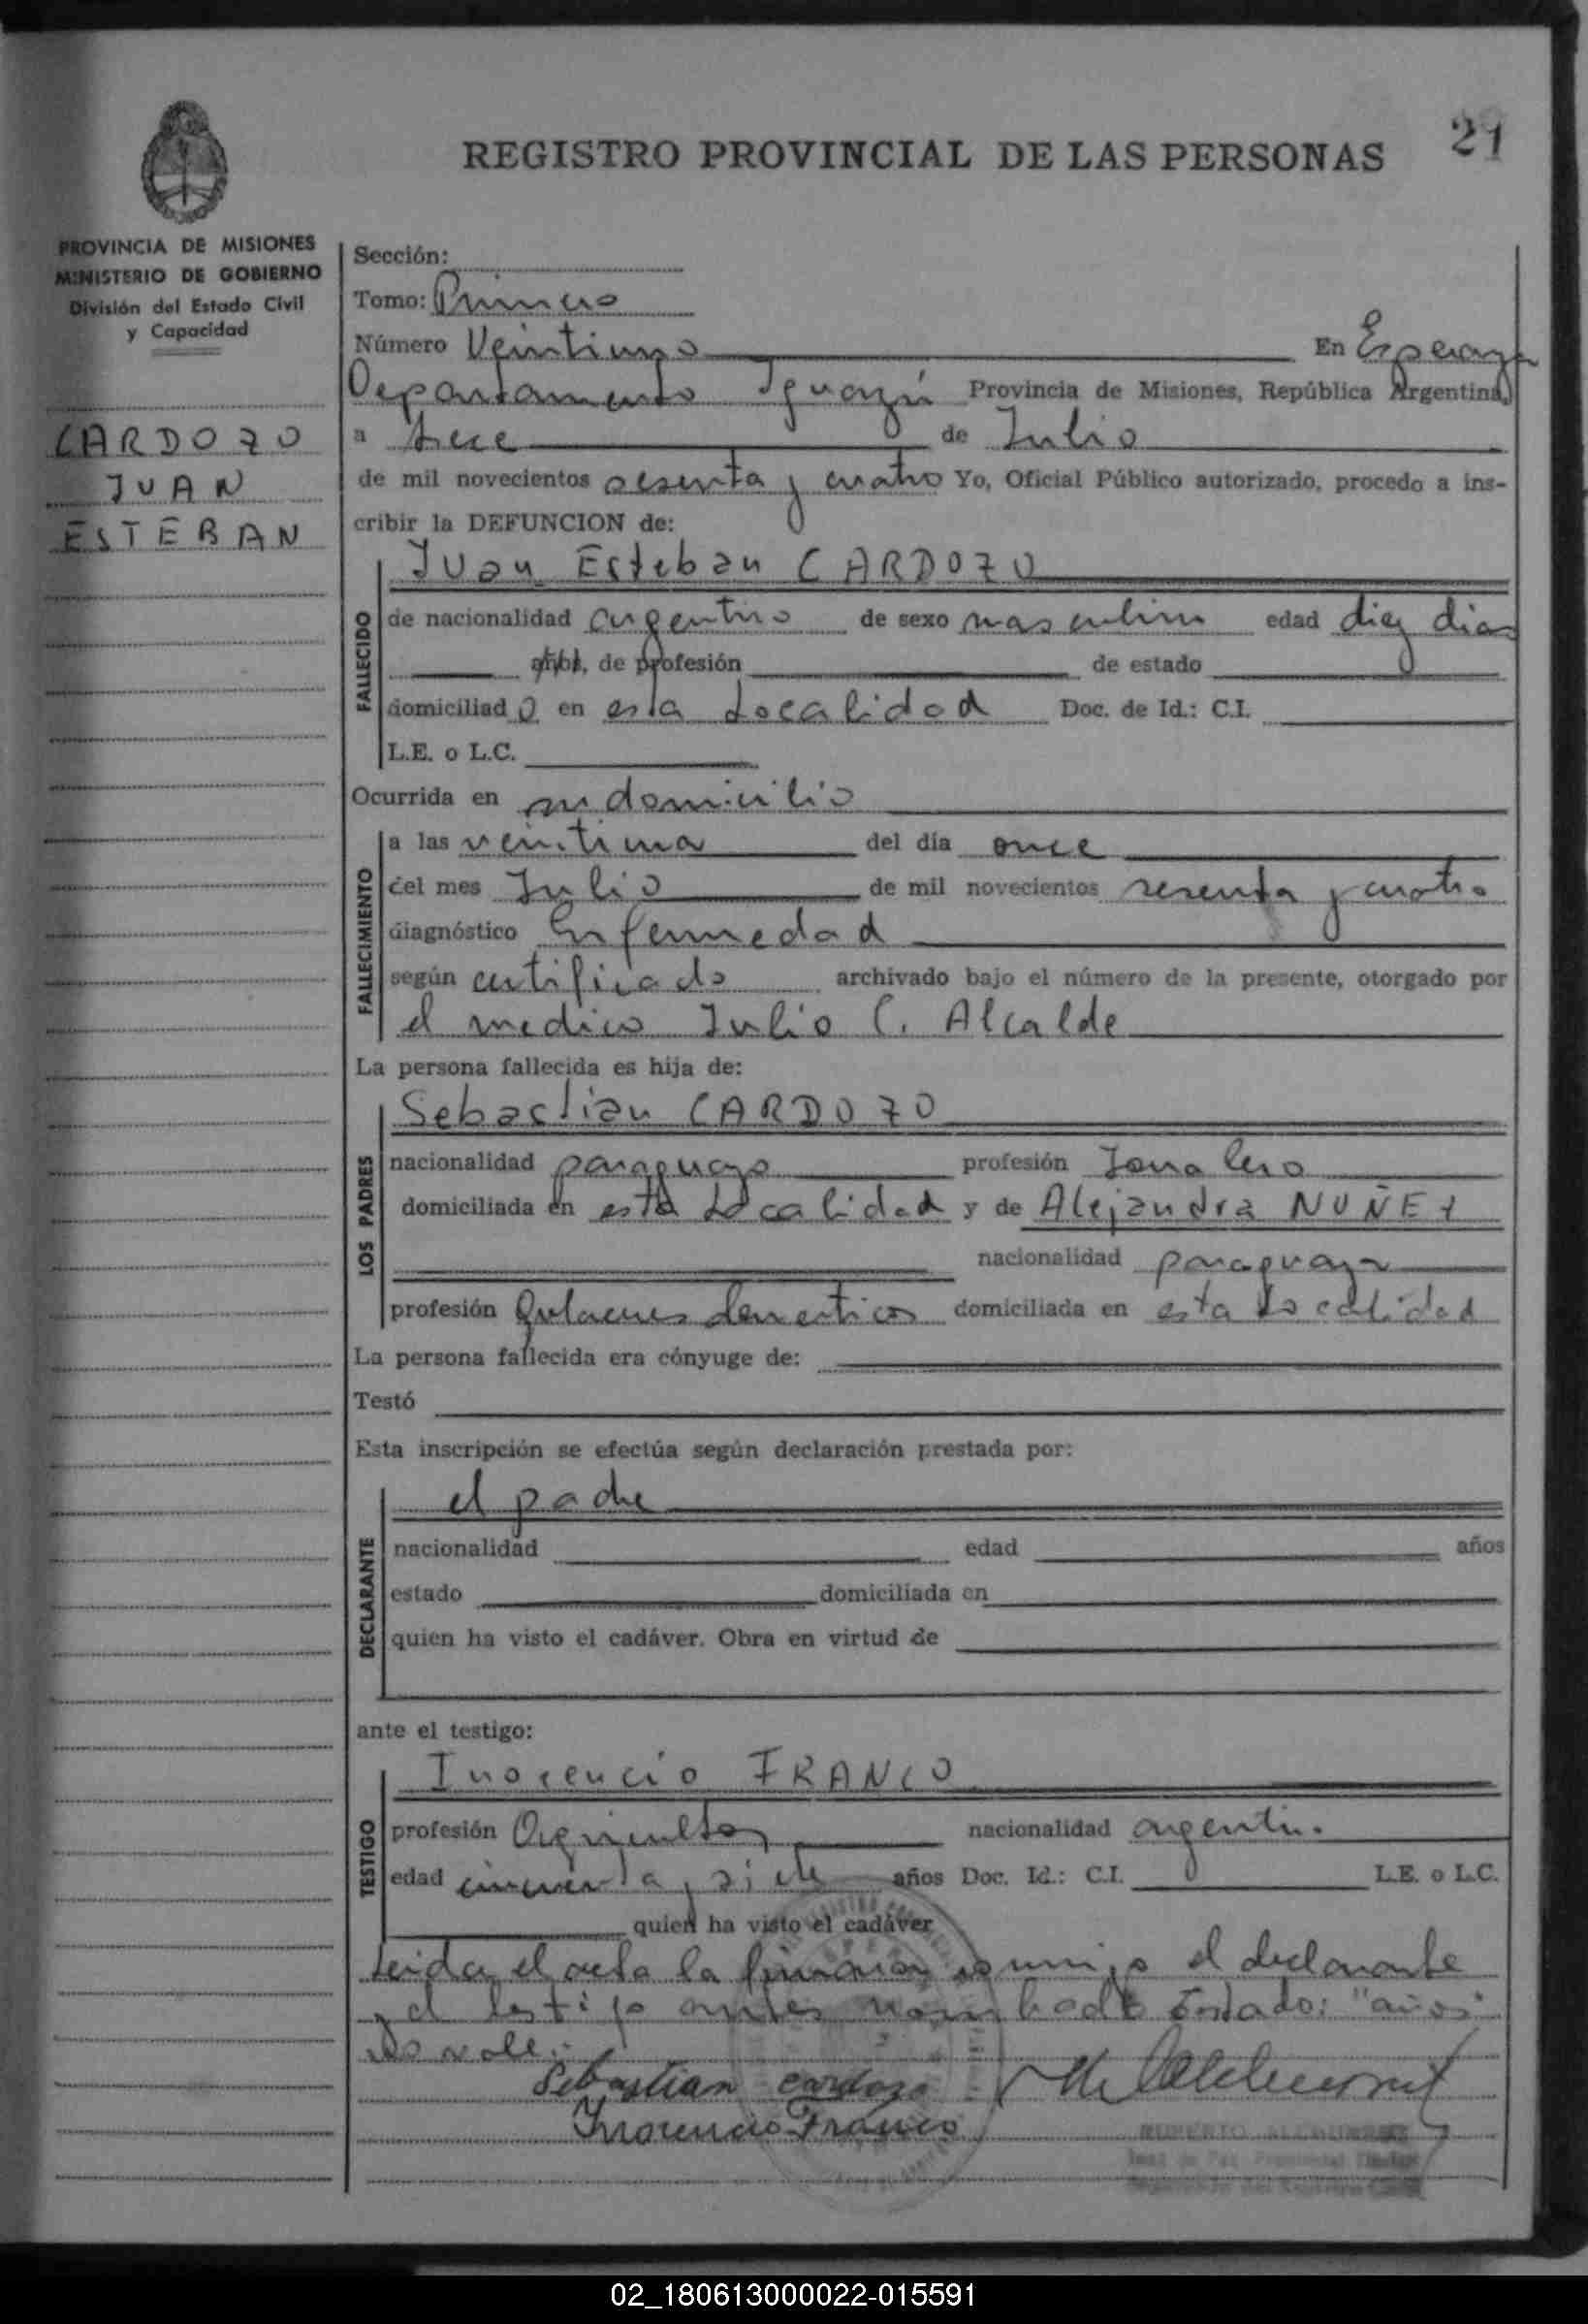 21
REGISTRO PROVINCIAL DE LAS PERSONAS
PROVINCIA DE MISIONES
MINISTERIO DE GOBIERNO
División del Estado Civil
y Capacidad
CARDOZO
JUAN
ESTEBAN
Sección:
Tomo: Primero
Número Veintiuno En Esperanza
Departamento Iguazú Provincia de Misiones, República Argentina,
a trece de Julio
de mil novecientos sesenta y cuatro Yo, Oficial Público autorizado, procedo a ins-
cribir la DEFUNCION de:
FALLECIDO
Juan Esteban CARDOZO
de nacionalidad argentino de sexo masculino edad diez dias
años, de profesión de estado
domiciliado en esta Localidad Doc. de Id.: C.I.
L.E. o L.C.
Ocurrida en su domicilio
FALLECIMIENTO
a las veintiuna del día once
del mes Julio de mil novecientos sesenta y cuatro
diagnóstico Enfermedad
según certificado archivado bajo el número de la presente, otorgado por
el medico Julio C. Alcalde
La persona fallecida es hija de:
LOS PADRES
Sebastian CARDOZO
nacionalidad paraguayo profesión Jornalero
domiciliada en esta Localidad y de Alejandra NUÑEZ
nacionalidad paraguaya
profesión Quehaceres domesticos domiciliada en esta Localidad
La persona fallecida era cónyuge de:
Testó
Esta inscripción se efectúa según declaración prestada por:
DECLARANTE
el padre
nacionalidad edad años
estado domiciliada en
quien ha visto el cadáver. Obra en virtud de
ante el testigo:
TESTIGO
Inocencio FRANCO
profesión Agricultor nacionalidad argentino
edad cincuenta y siete años Doc. Id.: C.I. L.E. o L.C.
quien ha visto el cadáver
Leida el acta la firmaron conmigo el declarante
y el testigo antes nombrado Testado: "años"
no vale.
Sebastian cardozo
Inocencio Franco
02_180613000022-015591